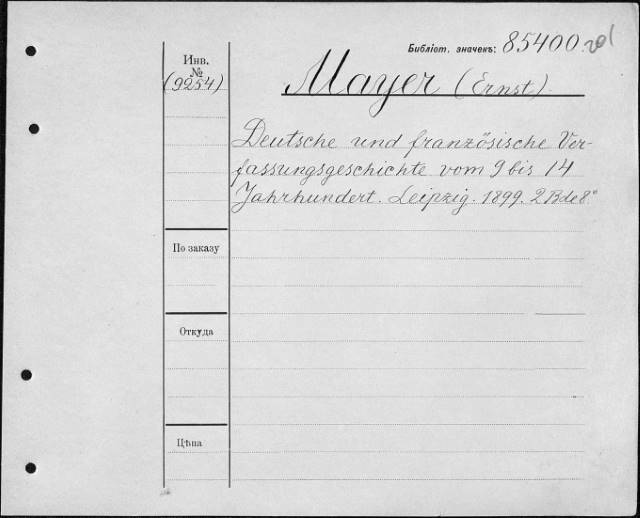 Библіот. значекъ: 85400
Инв.
№
(9254)
Mayer (Ernst).
Deutsche und französische Ver-
fassungsgeschichte vom 9 bis 14
Jahrhundert. Leipzig. 1899. 2 Bde 8.°
По заказу
Откуда
Цѣна